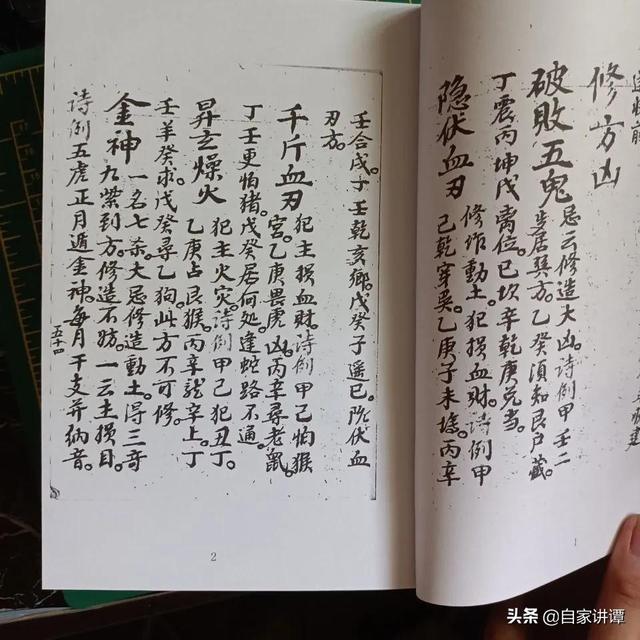 修方凶
破敗五鬼 忌云修造大凶。诗例甲壬二
隻居巽方。乙癸须知艮户藏。
丁震丙坤戊离位。己坎辛乾庚兑当。
隐伏血刃 修作動土犯损血财。诗例甲
己乾穿巽。乙庚子未
丙辛
壬合戌。子壬乾亥鄉。戊癸子遥巳。
伏血
刃方。
千斤血刃 犯主损血财。诗例甲己怕猴
宫。乙庚畏虎凶。丙辛尋老鼠。
丁壬更怕猪。戊癸居何处。逢蛇路不通。
昇玄燥火 犯主火灾。诗例甲己犯丑丁。
乙庚占艮猴。丙辛龙辛上。丁
壬羊癸求。戊癸尋乙狗。此方不可修。
金神 一名七杀。大忌修造動土。得三奇
九紫到方。修造不妨。一云主损目。
诗例五虎正月遁金神。每月干支并纳音。
五十四
2
1
头条 @自家讲谭